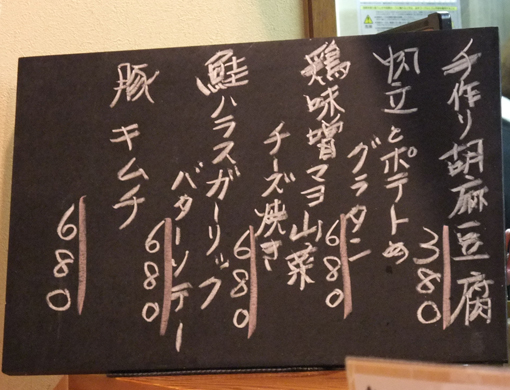 手作り胡麻豆腐
380
帆立とポテトの
グラタン
680
鶏味噌マヨ山菜
チーズ焼き
680
鮭ハラスガーリック
バターソテー
680
豚キムチ
680